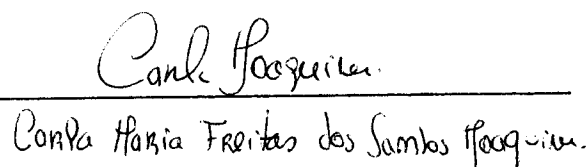 Carla Joaquim.
Carla Maria Freitas dos Santos Joaquim.